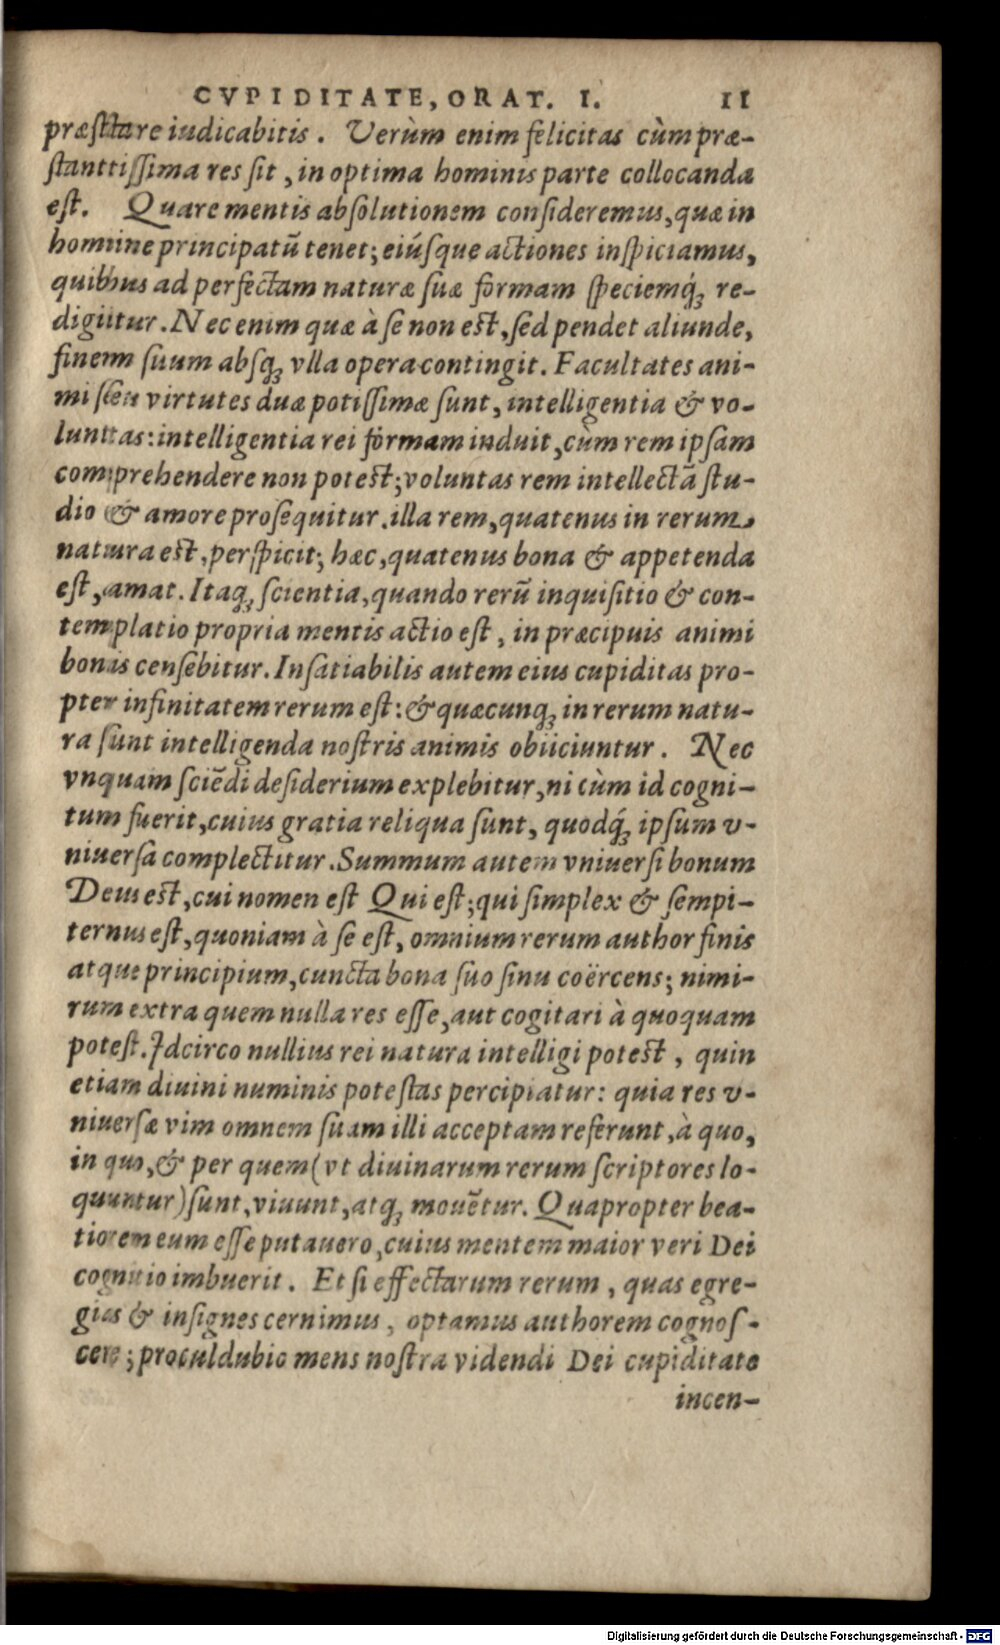 CVPIDITATE, ORAT. I. 11
præſtare iudicabitis. Verùm enim felicitas cùm præ-
ſtantiſſima res ſit, in optima hominis parte collocanda
eſt. Quare mentis abſolutionem conſideremus, quæ in
homine principatū tenet; eiúſque actiones inſpiciamus,
quibus ad perfectam naturæ ſuæ formam ſpeciemq́ꝫ re-
digiitur. Nec enim quæ à ſe non eſt, ſed pendet aliunde,
finem ſuum abſqꝫ vlla opera contingit. Facultates ani-
mi ſeu virtutes duæ potiſſimæ ſunt, intelligentia & vo-
luntas: intelligentia rei formam induit, cùm rem ipſam
comprehendere non poteſt; voluntas rem intellectā ſtu-
dio & amore proſequitur. illa rem, quatenus in rerum
natura eſt, perſpicit; hæc, quatenus bona & appetenda
eſt, amat. Itaqꝫ ſcientia, quando rerū inquiſitio & con-
templatio propria mentis actio eſt, in præcipuis animi
bonis cenſebitur. Inſatiabilis autem eius cupiditas pro-
pter infinitatem rerum eſt: & quæcunqꝫ in rerum natu-
ra ſunt intelligenda noſtris animis obiiciuntur. Nec
vnquam ſciēdi deſiderium explebitur, ni cùm id cogni-
tum fuerit, cuius gratia reliqua ſunt, quodq́ꝫ ipſum v-
niuerſa complectitur. Summum autem vniuerſi bonum
Deus eſt, cui nomen eſt Qui eſt; qui ſimplex & ſempi-
ternus eſt, quoniam à ſe eſt, omnium rerum author finis
atque principium, cuncta bona ſuo ſinu coërcens; nimi-
rum extra quem nulla res eſſe, aut cogitari à quoquam
poteſt. Idcirco nullius rei natura intelligi poteſt, quin
etiam diuini numinis poteſtas percipiatur: quia res v-
niuerſæ vim omnem ſuam illi acceptam referunt, à quo,
in quo, & per quem (vt diuinarum rerum ſcriptores lo-
quuntur) ſunt, viuunt, atqꝫ mouētur. Quapropter bea-
tiorem eum eſſe putauero, cuius mentem maior veri Dei
cognitio imbuerit. Et ſi effectarum rerum, quas egre-
gias & inſignes cernimus, optamus authorem cognoſ-
cere; proculdubio mens noſtra videndi Dei cupiditate
incen-
Digitalisierung gefördert durch die Deutsche Forschungsgemeinschaft - DFG